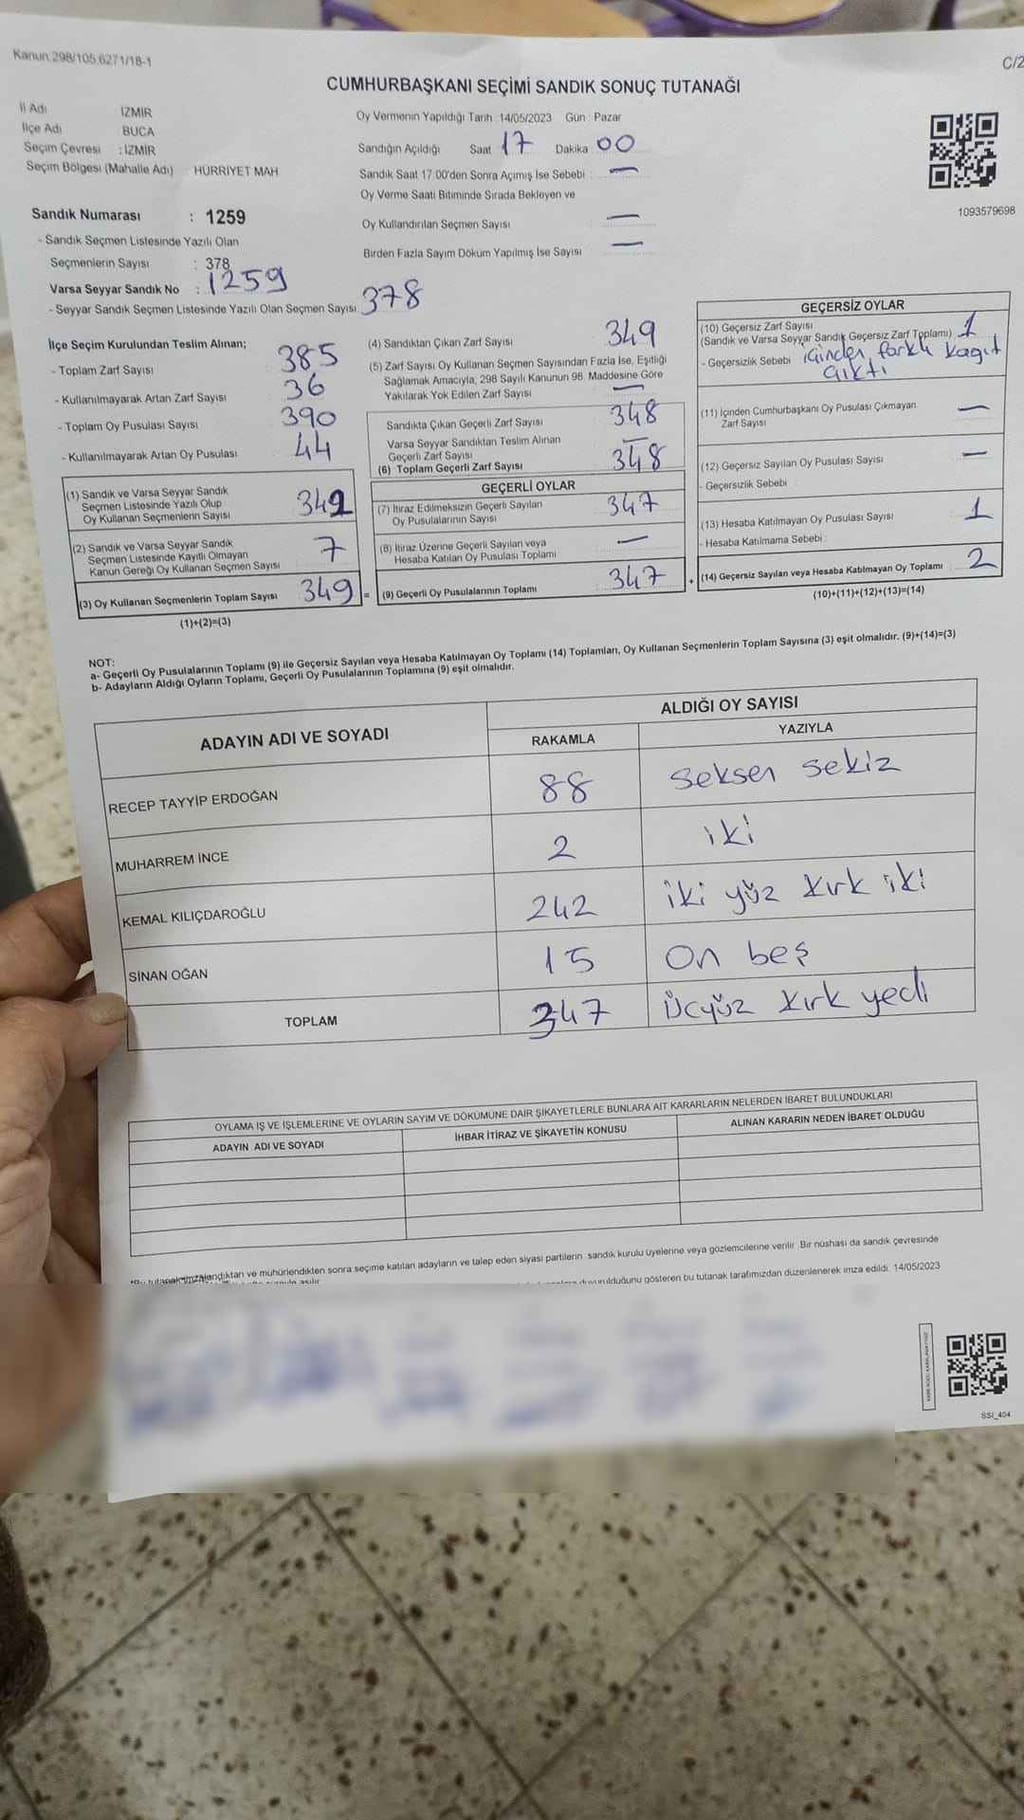 Kanun:298/105.6271/18-1
C/2
CUMHURBAŞKANI SEÇİMİ SANDIK SONUÇ TUTANAĞI
İl Adı İZMİR
İlçe Adı BUCA
Seçim Çevresi : İZMİR
Seçim Bölgesi (Mahalle Adı) HÜRRİYET MAH
Sandık Numarası : 1259
- Sandık Seçmen Listesinde Yazılı Olan
Seçmenlerin Sayısı : 378
Varsa Seyyar Sandık No : 1259
- Seyyar Sandık Seçmen Listesinde Yazılı Olan Seçmen Sayısı 378
Oy Vermenin Yapıldığı Tarih :14/05/2023 Gün Pazar
Sandığın Açıldığı Saat 17 Dakika 00
Sandık Saat 17:00'den Sonra Açımış İse Sebebi : —
Oy Verme Saati Bitiminde Sırada Bekleyen ve
Oy Kullandırılan Seçmen Sayısı —
Birden Fazla Sayım Döküm Yapılmış İse Sayısı —
1093579698
İlçe Seçim Kurulundan Teslim Alınan;
- Toplam Zarf Sayısı 385
- Kullanılmayarak Artan Zarf Sayısı 36
- Toplam Oy Pusulası Sayısı 390
- Kullanılmayarak Artan Oy Pusulası 44
(1) Sandık ve Varsa Seyyar Sandık
Seçmen Listesinde Yazılı Olup
Oy Kullanan Seçmenlerin Sayısı
(2) Sandık ve Varsa Seyyar Sandık
Seçmen Listesinde Kayıtlı Olmayan
Kanun Gereği Oy Kullanan Seçmen Sayısı 7
(3) Oy Kullanan Seçmenlerin Toplam Sayısı 349 =
(1)+(2)=(3)
(4) Sandıktan Çıkan Zarf Sayısı 349
(5) Zarf Sayısı Oy Kullanan Seçmen Sayısından Fazla İse, Eşitliği
Sağlamak Amacıyla, 298 Sayılı Kanunun 98. Maddesine Göre
Yakılarak Yok Edilen Zarf Sayısı —
Sandıkta Çıkan Geçerli Zarf Sayısı 348
Varsa Seyyar Sandıktan Teslim Alınan
Geçerli Zarf Sayısı —
(6) Toplam Geçerli Zarf Sayısı 348
GEÇERLİ OYLAR
(7) İtiraz Edilmeksizin Geçerli Sayılan
Oy Pusulalarının Sayısı 347
(8) İtiraz Üzerine Geçerli Sayılan veya
Hesaba Katılan Oy Pusulası Toplamı —
(9) Geçerli Oy Pusulalarının Toplamı 347 +
GEÇERSİZ OYLAR
(10) Geçersiz Zarf Sayısı
(Sandık ve Varsa Seyyar Sandık Geçersiz Zarf Toplamı) 1
- Geçersizlik Sebebi içinden farklı kağıt
çıktı
(11) İçinden Cumhurbaşkanı Oy Pusulası Çıkmayan
Zarf Sayısı —
(12) Geçersiz Sayılan Oy Pusulası Sayısı —
- Geçersizlik Sebebi
(13) Hesaba Katılmayan Oy Pusulası Sayısı 1
- Hesaba Katılmama Sebebi :
(14) Geçersiz Sayılan veya Hesaba Katılmayan Oy Toplamı 2
(10)+(11)+(12)+(13)=(14)
NOT:
a- Geçerli Oy Pusulalarının Toplamı (9) ile Geçersiz Sayılan veya Hesaba Katılmayan Oy Toplamı (14) Toplamları, Oy Kullanan Seçmenlerin Toplam Sayısına (3) eşit olmalıdır. (9)+(14)=(3)
b- Adayların Aldığı Oyların Toplamı, Geçerli Oy Pusulalarının Toplamına (9) eşit olmalıdır.
ADAYIN ADI VE SOYADI
ALDIĞI OY SAYISI
RAKAMLA YAZIYLA
RECEP TAYYİP ERDOĞAN 88 seksen sekiz
MUHARREM İNCE 2 iki
KEMAL KILIÇDAROĞLU 242 iki yüz kırk iki
SİNAN OĞAN 15 on beş
TOPLAM 347 üçyüz kırk yedi
OYLAMA İŞ VE İŞLEMLERİNE VE OYLARIN SAYIM VE DÖKÜMÜNE DAİR ŞİKAYETLERLE BUNLARA AİT KARARLARIN NELERDEN İBARET BULUNDUKLARI
ADAYIN ADI VE SOYADI İHBAR İTİRAZ VE ŞİKAYETİN KONUSU ALINAN KARARIN NEDEN İBARET OLDUĞU
ve mühürlendikten sonra seçime katılan adayların ve talep eden siyasi partilerin sandık kurulu üyelerine veya gözlemcilerine verilir. Bir nüshası da sandık çevresinde
gösteren bu tutanak tarafımızdan düzenlenerek imza edildi. 14/05/2023
SSI_404